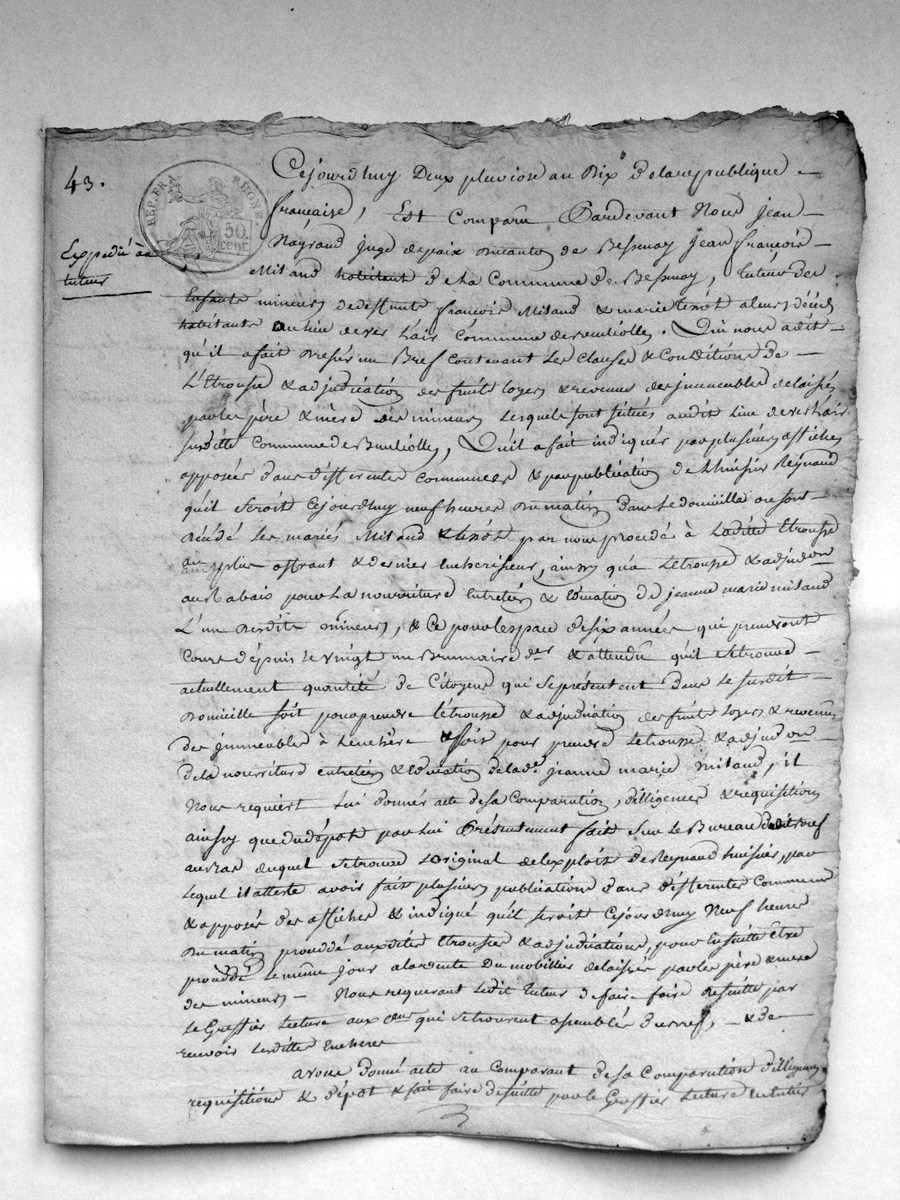 43.
REP. FRA. RHONE
50.
cent.
Expedié au
tuteur
Cejourdhuy Deux pluviose an Dix de la republique
francaise, Est Comparu Pardevant Nous Jean
Reynaud Juge depaix du canton de Bessenay Jean françois
Milaud habitant de La Commune de Bessenay, tuteur des
Enfants mineurs de deffunts françois Milaud & marie aleurs décès
habitants au lieu de Commune de . Qui nous a dit
qu'il a fait un Bref contenant les clauses & Conditions de
L'Etrousse & adjudication des fruits loyers & revenus des immeubles delaissés
par les père & mère des mineurs, lesquels sont situés audit Lieu de
susditte Commune de , Qu'il a fait indiquer par plusieurs affiches
apposées dans differentes communes & par publication de Lhuissier Reynaud
qu'il seroit Cejourdhuy neuf heures du matin dans le domicille ou sont
décédé les mariés Milaud & par nous procedé à Laditte Etrousse
au plus offrant & dernier encherisseur, ainsy qu'a Letrousse & adjudon
au Rabais pour La nourriture Entretien & Education de jeanne marie milaud
L'un desdits mineurs, & ce pour lespace de six années qui prendront
Cours depuis le vingt un Brumaire der & attendu qu'il se trouve
actuellement quantité de Citoyens qui se présentent dans le susdit
Domicille soit pour prendre l'étrousse & adjudication des fruits Loyers & revenus
des immeubles à Lenchère & soit pour prendre Letrousse & adjudon
de la nourriture entretien & Education de lade jeanne marie milaud, il
Nous requiert lui donner acte de sa Comparution, dilligences & requisition
ainsy que du dépot par Lui Présentement fait sur le Bureau dudit Bref
au Bas duquel se trouve L'original de lexploit de Reynaud huissier, par
Lequel il atteste avoir fait plusieurs publications dans différentes Communes
& apposés des affiches & indiqué qu'il seroit Cejourdhuy Neuf heures
du matin procédé aux dites Etrousses & adjudications, pour Ensuitte être
procédé le même jour a la vente du mobillier delaissé par les père & mère
des mineurs — Nous requerant ledit tuteur de faire faire de suitte par
le Greffier Lecture aux qui se trouvent assemblés , — & de
recevoir lesdittes Encheres
avons donné acte au Comparant de sa Comparution dilligences
requisitions & dépot & fait faire de suitte par le Greffier Lecture